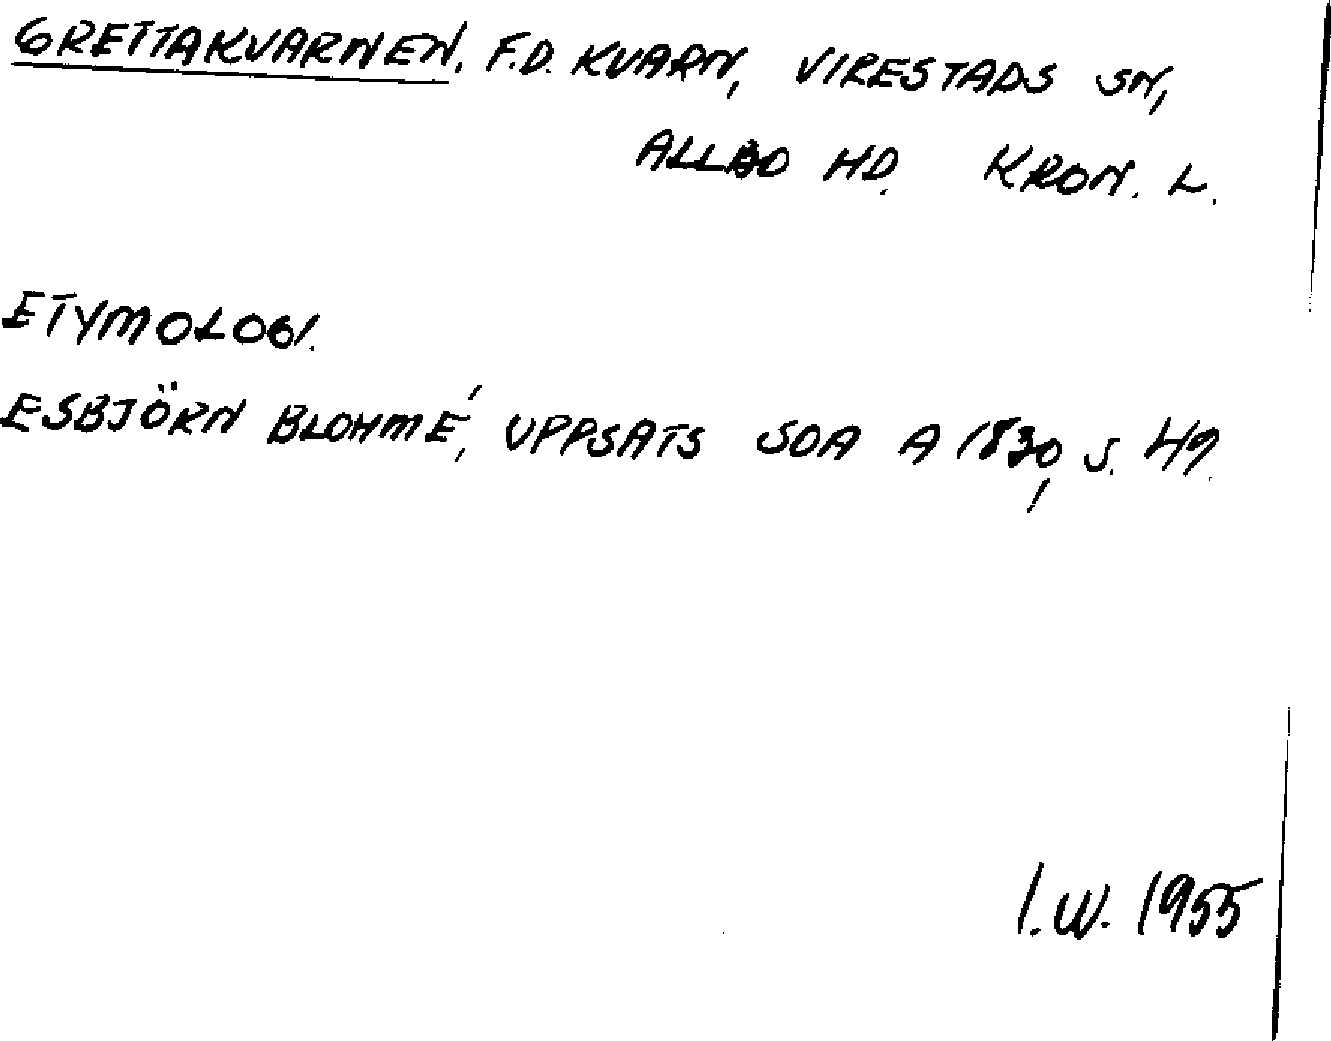 GRETTAKVARNEN. F.D. KVARN, VIRESTADS SN,
ALLBO HD. KRON. L.
ETYMOLOGI.
ESBJÖRN BLOHMÉ, UPPSATS SOA A 1830, S. 49.
I.W. 1955